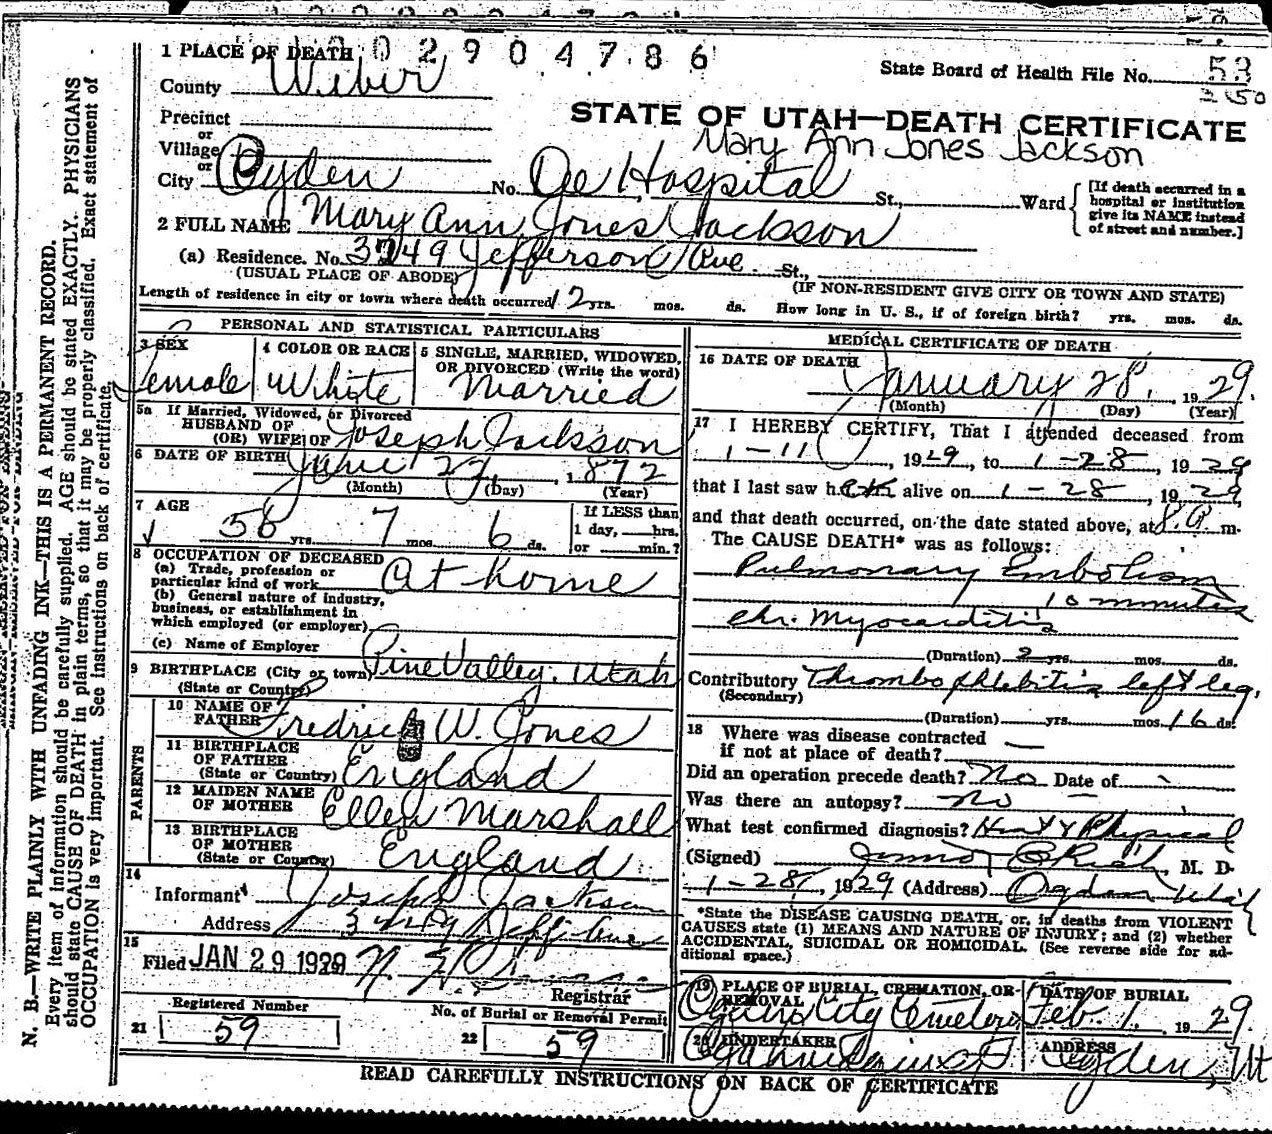 2904786
1 PLACE OF DEATH
State Board of Health File No. 53
County Weber
3150
STATE OF UTAH—DEATH CERTIFICATE
Precinct
or
Mary Ann Jones Jackson
Village
or
City Ogden No. Dee Hospital St., Ward [If death occurred in a hospital or institution give its NAME instead of street and number.]
2 FULL NAME Mary Ann Jones Jackson
(a) Residence. No. 3249 Jefferson Ave. St.,
(USUAL PLACE OF ABODE) (IF NON-RESIDENT GIVE CITY OR TOWN AND STATE)
Length of residence in city or town where death occurred 12 yrs. mos. ds. How long in U. S., if of foreign birth? yrs. mos. ds.
PERSONAL AND STATISTICAL PARTICULARS
3 SEX
Female
4 COLOR OR RACE
White
5 SINGLE, MARRIED, WIDOWED,
OR DIVORCED (Write the word)
Married
5a If Married, Widowed, or Divorced
HUSBAND OF
(OR) WIFE OF Joseph Jackson
6 DATE OF BIRTH June 22, 1872
(Month) (Day) (Year)
7 AGE
56 yrs. 7 mos. 6 ds.
If LESS than
1 day, hrs.
or min.?
8 OCCUPATION OF DECEASED
(a) Trade, profession or
particular kind of work At home
(b) General nature of industry,
business, or establishment in
which employed (or employer)
(c) Name of Employer
9 BIRTHPLACE (City or town) Pine Valley, Utah
(State or Country)
PARENTS
10 NAME OF
FATHER Fredrick W. Jones
11 BIRTHPLACE
OF FATHER
(State or Country) England
12 MAIDEN NAME
OF MOTHER Ellen Marshall
13 BIRTHPLACE
OF MOTHER
(State or Country) England
14
Informant Joseph Jackson
Address 3249 Jeff Ave
15
Filed JAN 29 1929
Registrar
Registered Number
21 59
No. of Burial or Removal Permit
22 59
MEDICAL CERTIFICATE OF DEATH
16 DATE OF DEATH
January 28, 1929.
(Month) (Day) (Year)
17 I HEREBY CERTIFY, That I attended deceased from
1-11, 1929, to 1-28, 1929
that I last saw her alive on 1-28, 1929,
and that death occurred, on the date stated above, at 8 a m.
The CAUSE DEATH* was as follows:
Pulmonary Embolism
10 minutes
Chr. Myocarditis
(Duration) 2 yrs. mos. ds.
Contributory Thrombophlebitis left leg.
(Secondary)
(Duration) yrs. mos. 16 ds.
18 Where was disease contracted
if not at place of death?
Did an operation precede death? No Date of
Was there an autopsy? no
What test confirmed diagnosis? Hist & Physical
(Signed) M. D.
1-28, 1929 (Address) Ogden Utah
*State the DISEASE CAUSING DEATH, or, in deaths from VIOLENT
CAUSES state (1) MEANS AND NATURE OF INJURY; and (2) whether
ACCIDENTAL, SUICIDAL OR HOMICIDAL. (See reverse side for ad-
ditional space.)
19 PLACE OF BURIAL, CREMATION, OR
REMOVAL
Ogden City Cemetery
DATE OF BURIAL
Feb. 1, 1929.
20 UNDERTAKER
ADDRESS
Ogden, Ut
READ CAREFULLY INSTRUCTIONS ON BACK OF CERTIFICATE
N. B.—WRITE PLAINLY WITH UNFADING INK—THIS IS A PERMANENT RECORD.
Every item of information should be carefully supplied. AGE should be stated EXACTLY. PHYSICIANS
should state CAUSE OF DEATH in plain terms, so that it may be properly classified. Exact statement of
OCCUPATION is very important. See instructions on back of certificate.